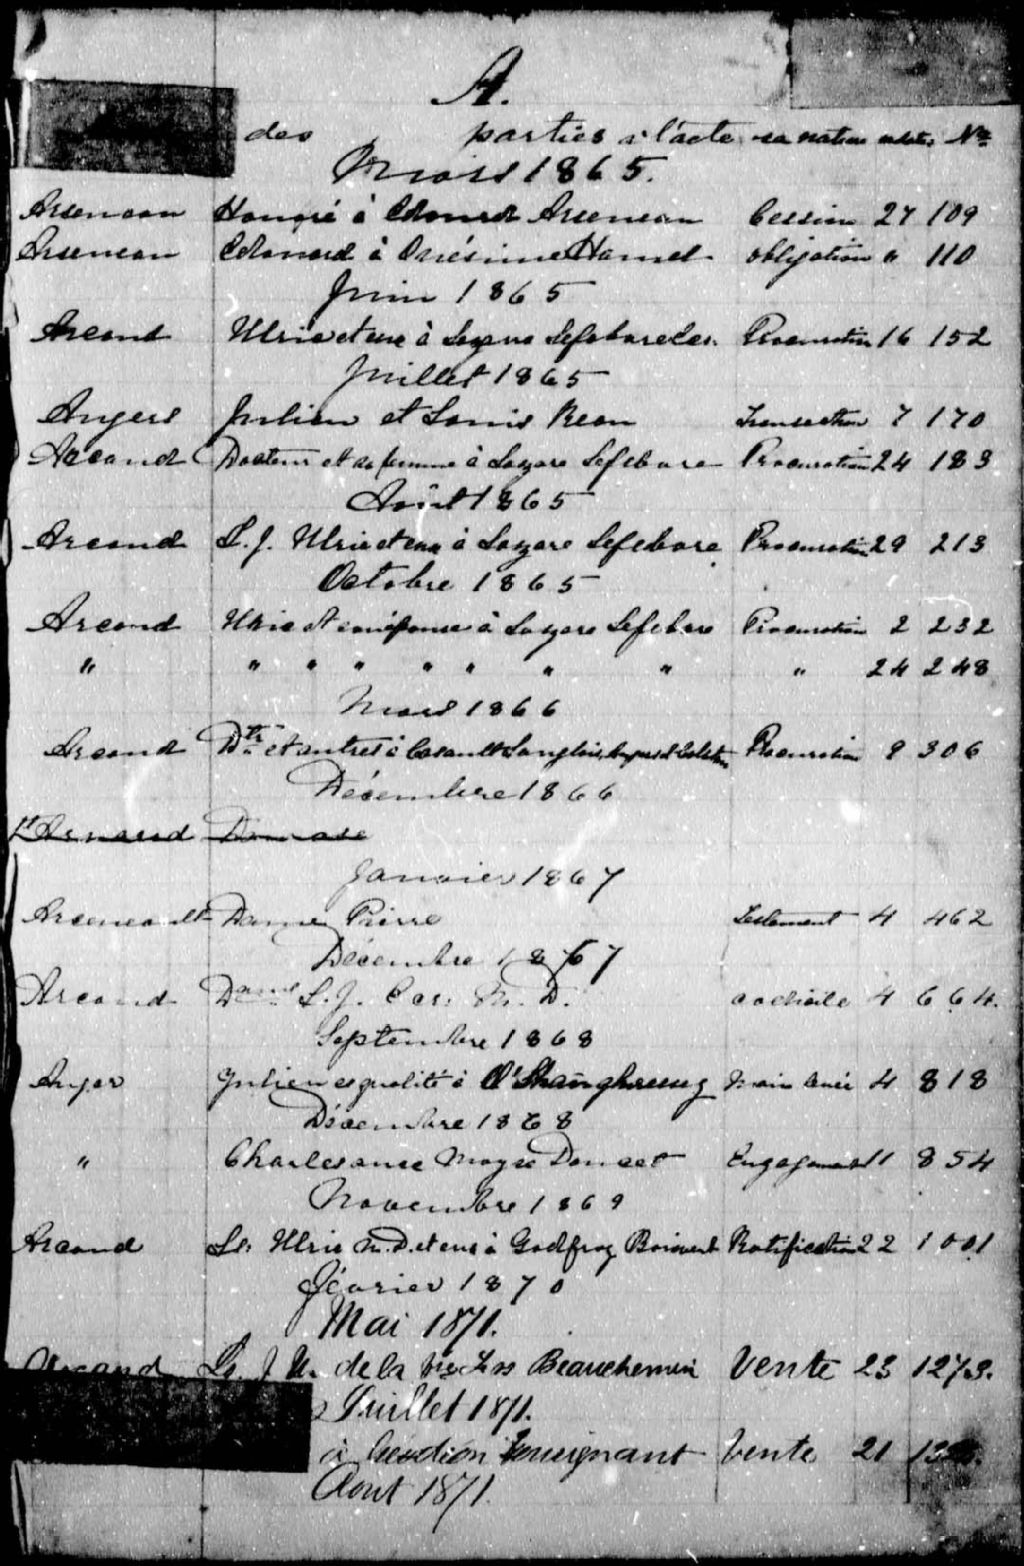 A.
des parties à l'acte sa nature et date No
Mars 1865.
Arseneau Honoré à Edouard Arseneau Cession 27 109
Arseneau Edouard à Onésime Hamel obligation " 110
Juin 1865
Arcand Ulric et uxe à Lazare Lefebvre Procuration 16 152
Juillet 1865
Angers Julien et Louis Beau Transaction 7 170
Arcand Docteur et sa femme à Lazare Lefebvre Procuration 24 183
Août 1865
Arcand L. J. Ulric et uxe à Lazare Lefebvre Procuration 29 213
Octobre 1865
Arcand Ulric et son épouse à Lazare Lefebvre Procuration 2 232
" " " " " " " " " 24 248
Mars 1866
Arcand Dtr et autres à Casault Langlois Procuration 9 306
Décembre 1866
St Arnaud Damase
Janvier 1867
Arseneault Dame Pierre Testament 4 462
Décembre 1867
Arcand Dame L. J. M. D. codicile 4 664.
Septembre 1868
Anger Julien esqualité à O'Shaughnessy Main levée 4 818
Décembre 1868
" Charles avec Moyse Doucet Engagement 11 854
Novembre 1869
Arcand Ls. Ulric M. D. et uxe à Godfroy Boisvert Ratification 22 1001
février 1870
Mai 1871.
Arcand Ls. J. U. de la Beauchemin Vente 23 1273.
Juillet 1871.
à Tourignant Vente 21
Aout 1871.